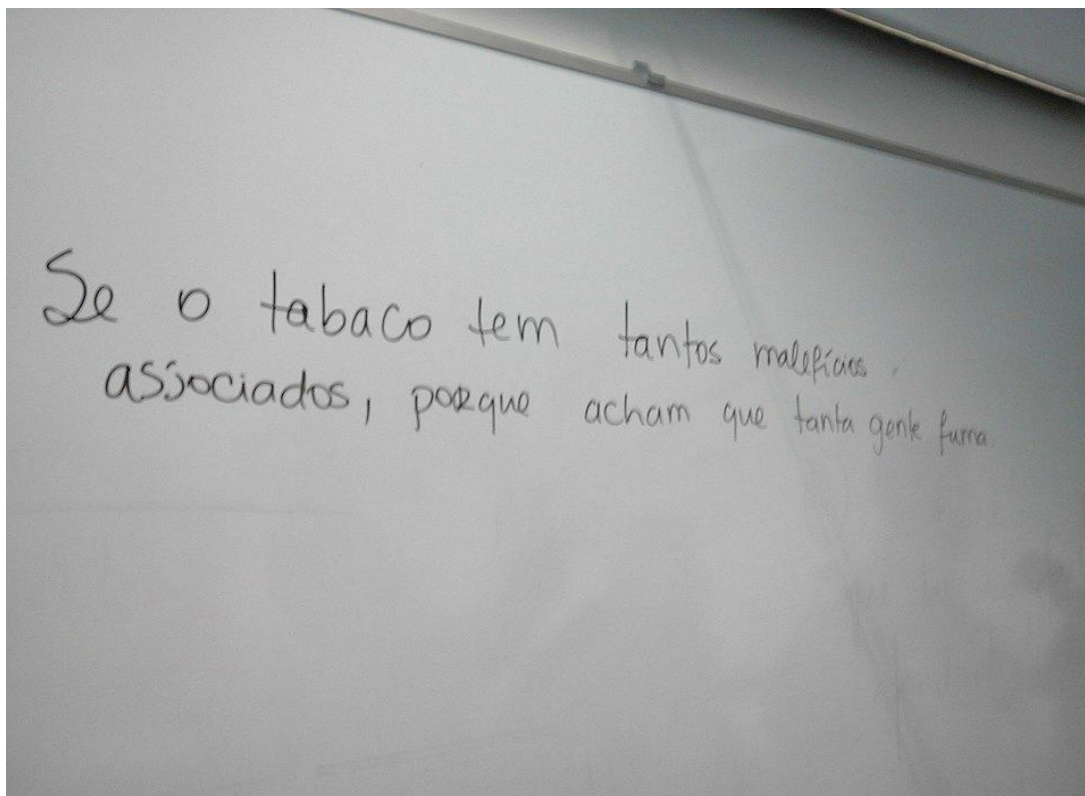 Se o tabaco tem tantos malefícios
associados, porque acham que tanta gente fuma.